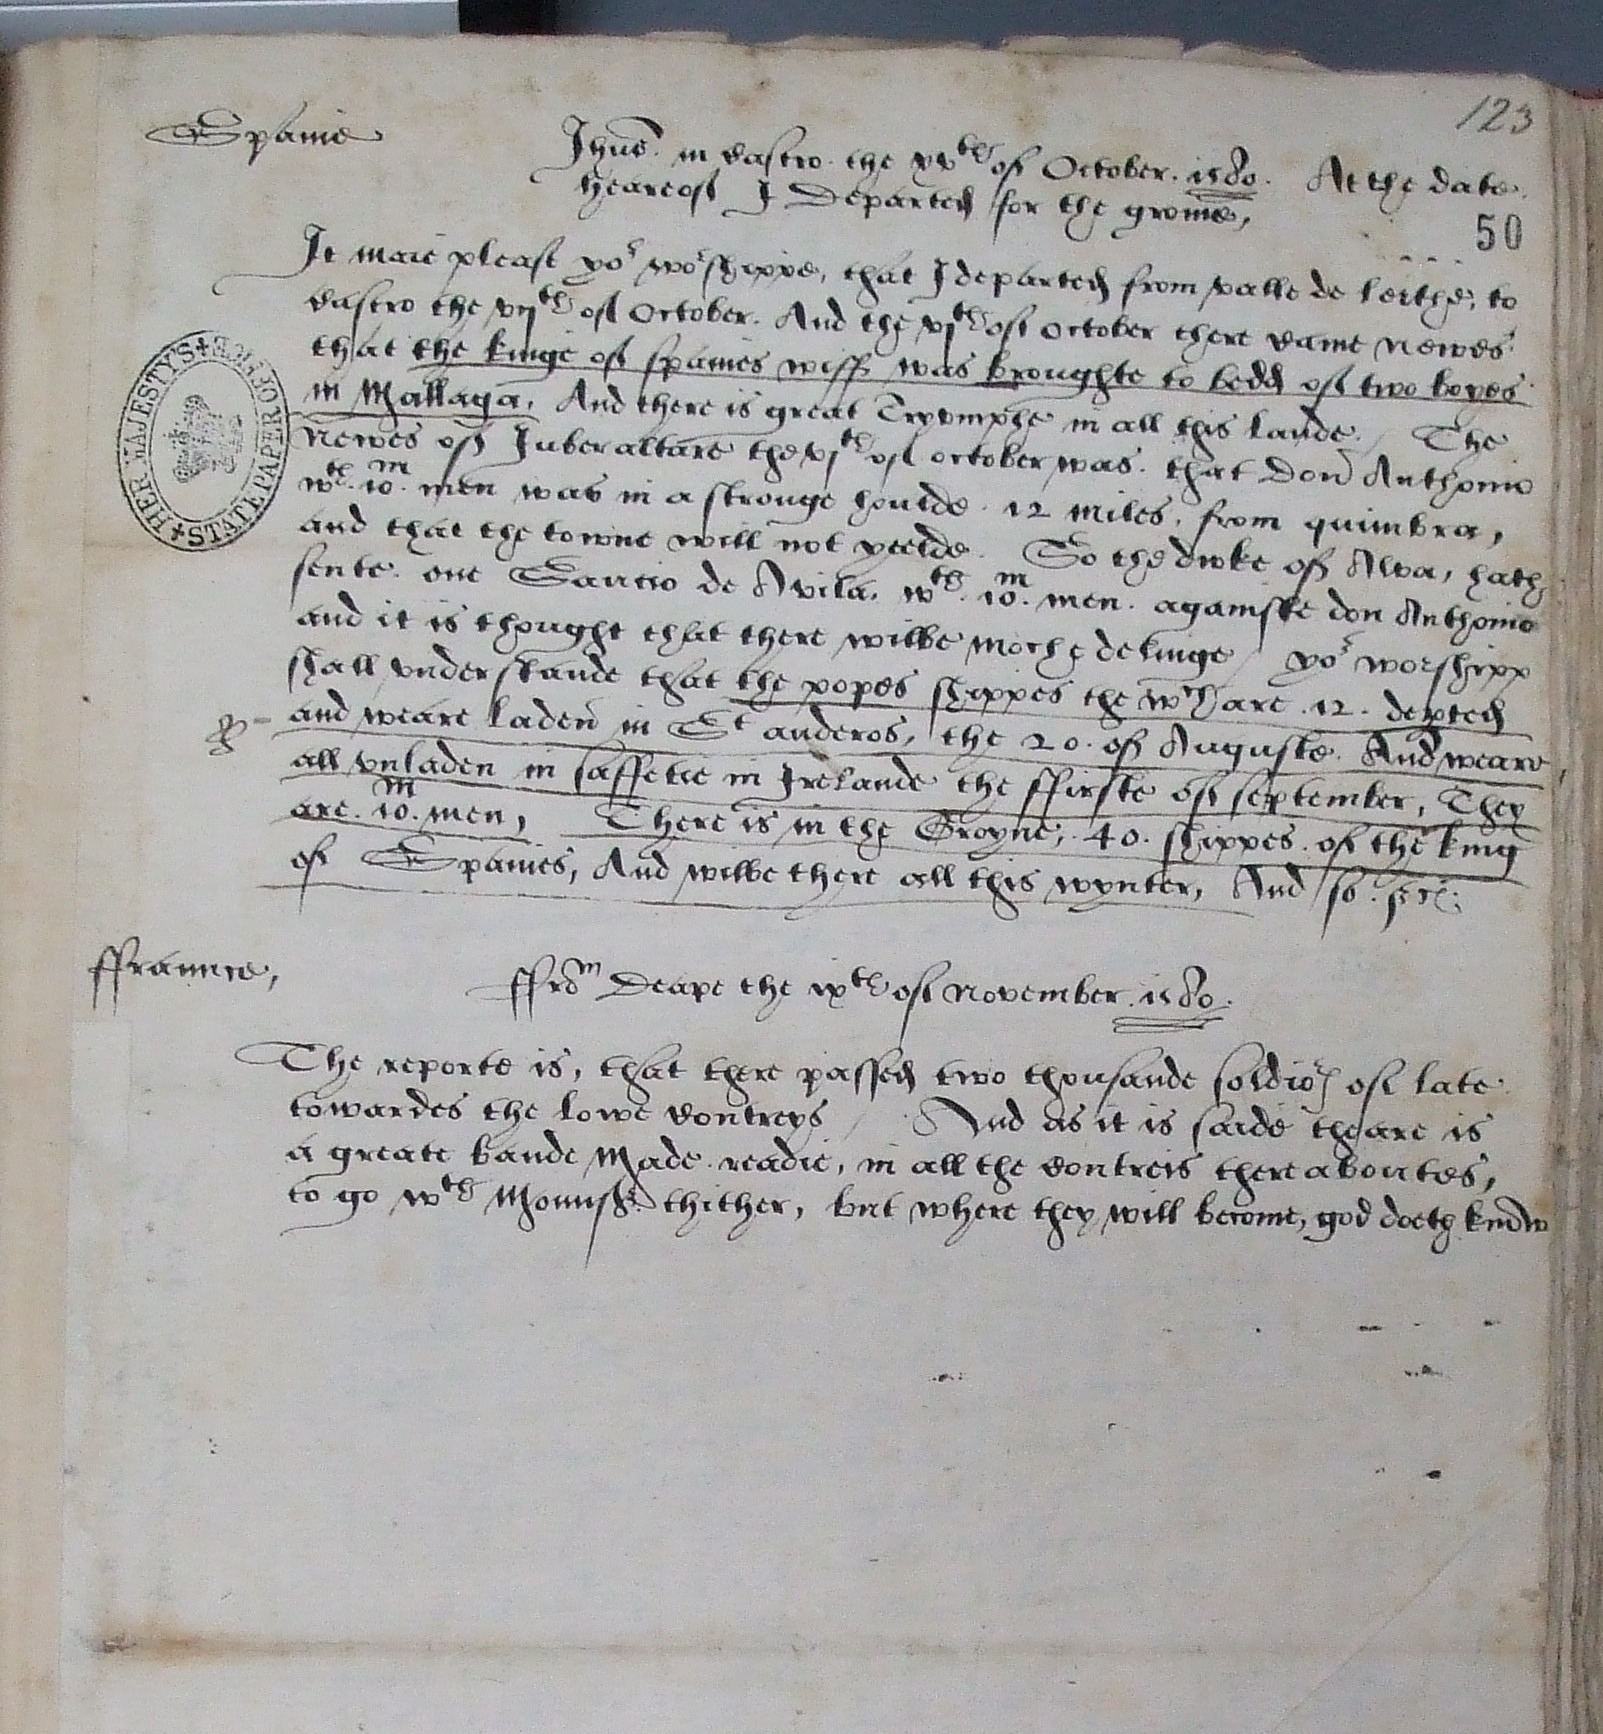 123
Spanie
Jhus. in Castro. the xvth of October. 1580. At the date.
heareof I Departed for the groine,
50
It maie please yor worshippe, that I departed from valle de leithe, to
Castro the viith of October. And the vith of October there came newes
that the kinge of Spanies wiff was broughte to bedd of two boyes
in Mallaga. And there is great Tryumphe in all this lande. / The
newes of Juberaltare the vith of october was. that Don Anthonio
wth. 10.m men was in a stronge houlde. 12 miles. from quimbra,
and that the towne will not yeelde. So the duke of Alva, hath
sente. one Sancio de Avila. wth. 10.m men. againste don Anthonio
and it is thought that there wilbe moche dekinge / yor worshipp
shall understande that the popes shippes the wch are. 12. depted
and weare laden in St anderos, the 20. of Auguste. And weare
all vnladen in saffetie in Irelande the ffirste of september, They
are. 10.m men, There is in the Groyne, 40. shippes. of the king
of Spanies, And wilbe there all this wynter, And so. &c.
HER MAJESTY'S STATE PAPER OFFICE
ffraunce,
ffrom Deape the ixth of November. 1580.
The reporte is, that there passed two thousande soldiors of late
towardes the lowe Contreys / And as it is saide theare is
a greate bande Made readie, in all the Contreis thereaboutes,
to go wth Mounsr. thither, but where they will become, god doeth know